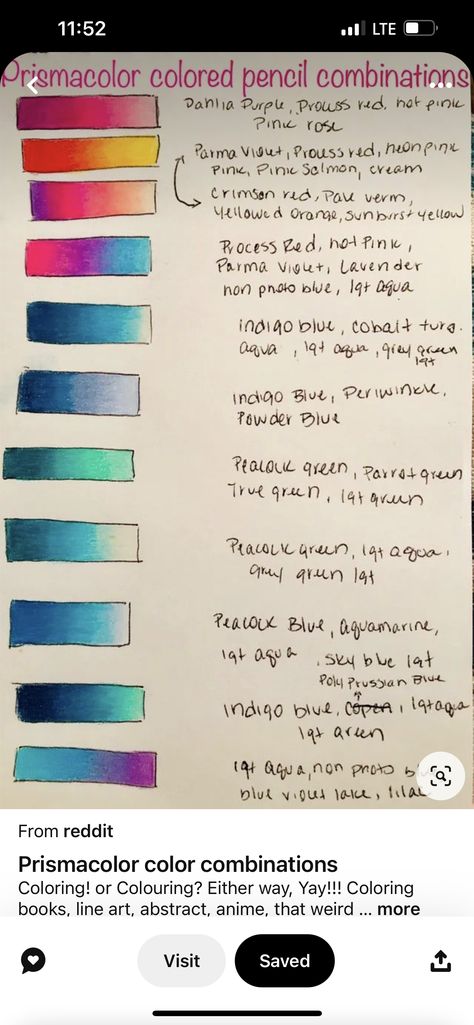 11:52
LTE
Prismacolor colored pencil combinations
Dahlia Purple, Process red, hot pink
Pink rose
Parma Violet, Process red, neon pink
Pink, Pink Salmon, cream
Crimson red, Pale verm,
Yellowed Orange, sunburst yellow
Process Red, hot Pink,
Parma Violet, Lavender
non photo blue, lgt aqua
indigo blue, cobalt turq.
aqua, lgt aqua, grey green
lgt
Indigo Blue, Periwinkle,
Powder Blue
Peacock green, Parrot green
True green, lgt green
Peacock green, lgt aqua,
grey green lgt
Peacock Blue, aquamarine,
lgt aqua, sky blue lgt
Poly Prussian Blue
Indigo blue, lgt aqua
lgt green
lgt aqua, non photo
blue violet lake,
From reddit
Prismacolor color combinations
Coloring! or Colouring? Either way, Yay!!! Coloring
books, line art, abstract, anime, that weird ... more
Visit
Saved